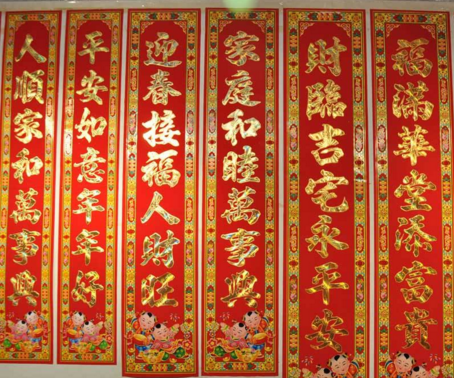 福滿華堂添富貴
財臨吉宅永平安
家庭和睦萬事興
迎春接福人財旺
平安如意年年好
人順家和萬事興